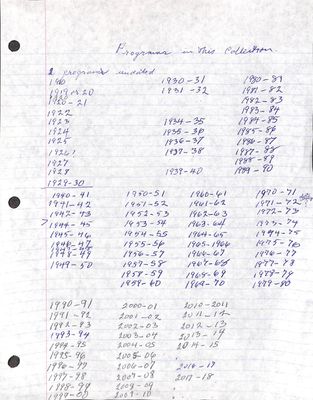 Programs in this Collection
2 programs undated
196 1930-31 1980-81
1919 or 20 1931-32 1981-82
1920-21 1982-83
1922 1983-84
1923 1934-35 1984-85
1924 1935-36 1985-86
1925 1936-37 1986-87
1926 1937-38 1987-88
1927 1988-89
1928 1939-40 1989-90
1929-30
1940-41 1950-51 1960-61 1970-71
1941-42 1951-52 1961-62 1971-72
1942-43 1952-53 1962-63 1972-73
1944-45 1953-54 1963-64 1973-74
1945-46 1954-55 1964-65 1974-75
1946-47 1955-56 1965-1966 1975-76
1948-49 1956-57 1966-67 1976-77
1949-50 1957-58 1967-68 1977-78
1957-59 1968-69 1978-79
1959-60 1969-70 1979-80
1990-91 2000-01 2010-2011
1991-92 2001-02 2011-12
1992-93 2002-03 2012-13
1993-94 2003-04 2013-14
1994-95 2004-05 2014-15
1995-96 2005-06
1996-97 2006-07 2016-17
1997-98 2007-08 2017-18
1998-99 2008-09
1999-00 2009-10